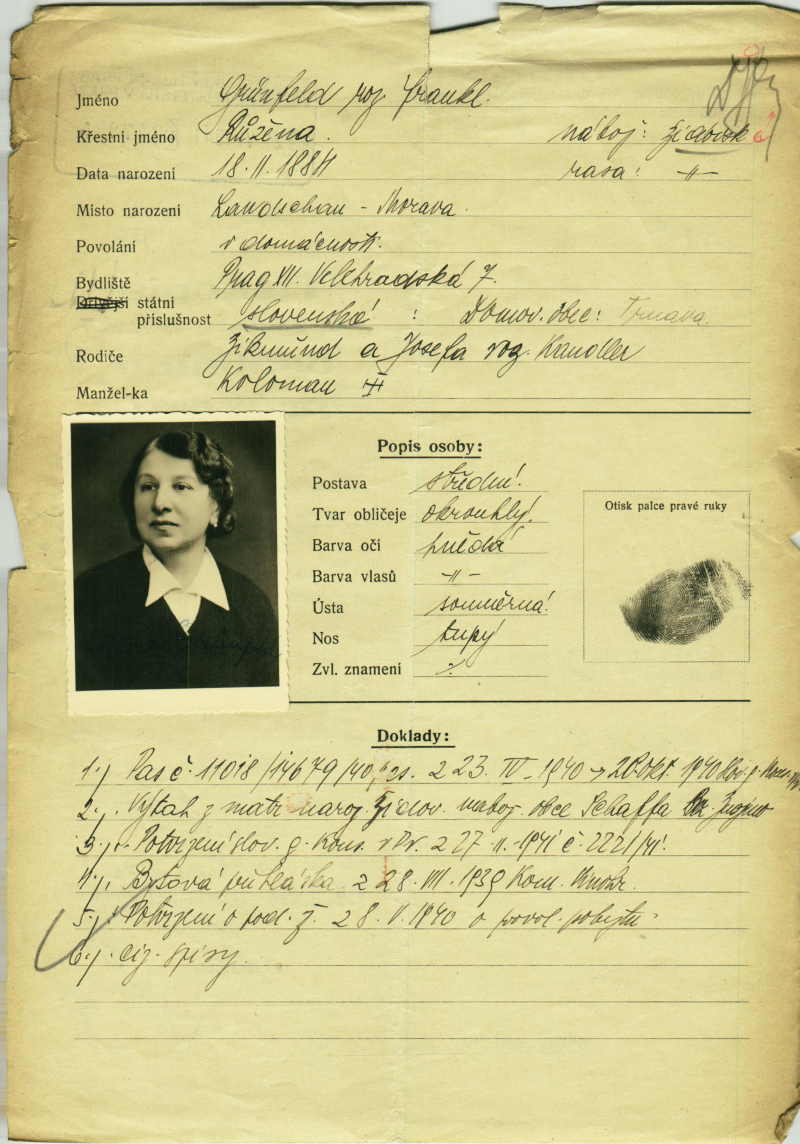 Jméno Grünfeld roz. Frankl.
Křestní jméno Růžena. nábož: židovsk
Data narození 18.II.1884 rasa: -〃-
Místo narození Landschau - Morava.
Povolání v domácnosti.
Bydliště Prag XII. Velehradská 7.
Dřívější státní
příslušnost slovenská : Domov. obec: Trnava.
Rodiče Zikmund a Josefa roz. Kandler
Manžel-ka Koloman
Popis osoby:
Postava střední.
Tvar obličeje okrouhlý.
Barva očí hnědá
Barva vlasů -〃-
Ústa souměrná.
Nos tupý
Zvl. znamení
Otisk palce pravé ruky
Doklady:
1.) Pas č. 11018/14679/40, z 23. IV. 1940 → 1940
2.) Výtah z matr. naroz. židov. nábož. obce Schaffa
3.) Potvrzení slov. g. kons. v Pr. z 27.11.1941 č. 2221/41.
4.) Bytová přihláška z 28.VII.1939 Kom.
5.) Potvrzení o pod. ž. z 8.V.1940 o povol. pobytu.
6.) ciz. spisy.